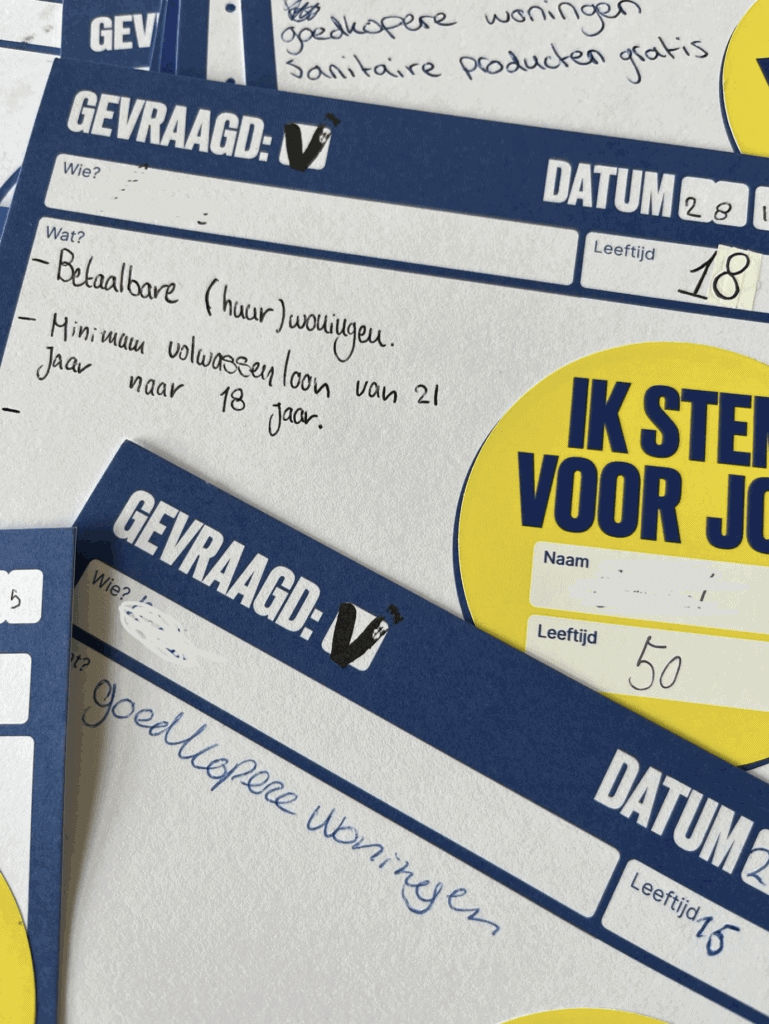 GEV
goedkopere woningen
Sanitaire producten gratis
GEVRAAGD:
DATUM 28
Wie?
Leeftijd 18
Wat?
- Betaalbare (huur)woningen.
- Minimum volwassenloon van 21
Jaar naar 18 jaar.
-
IK STE
VOOR JO
Naam
Leeftijd 50
5
GEVRAAGD:
DATUM 2
Wie?
Leeftijd 15
at?
goedkopere woningen